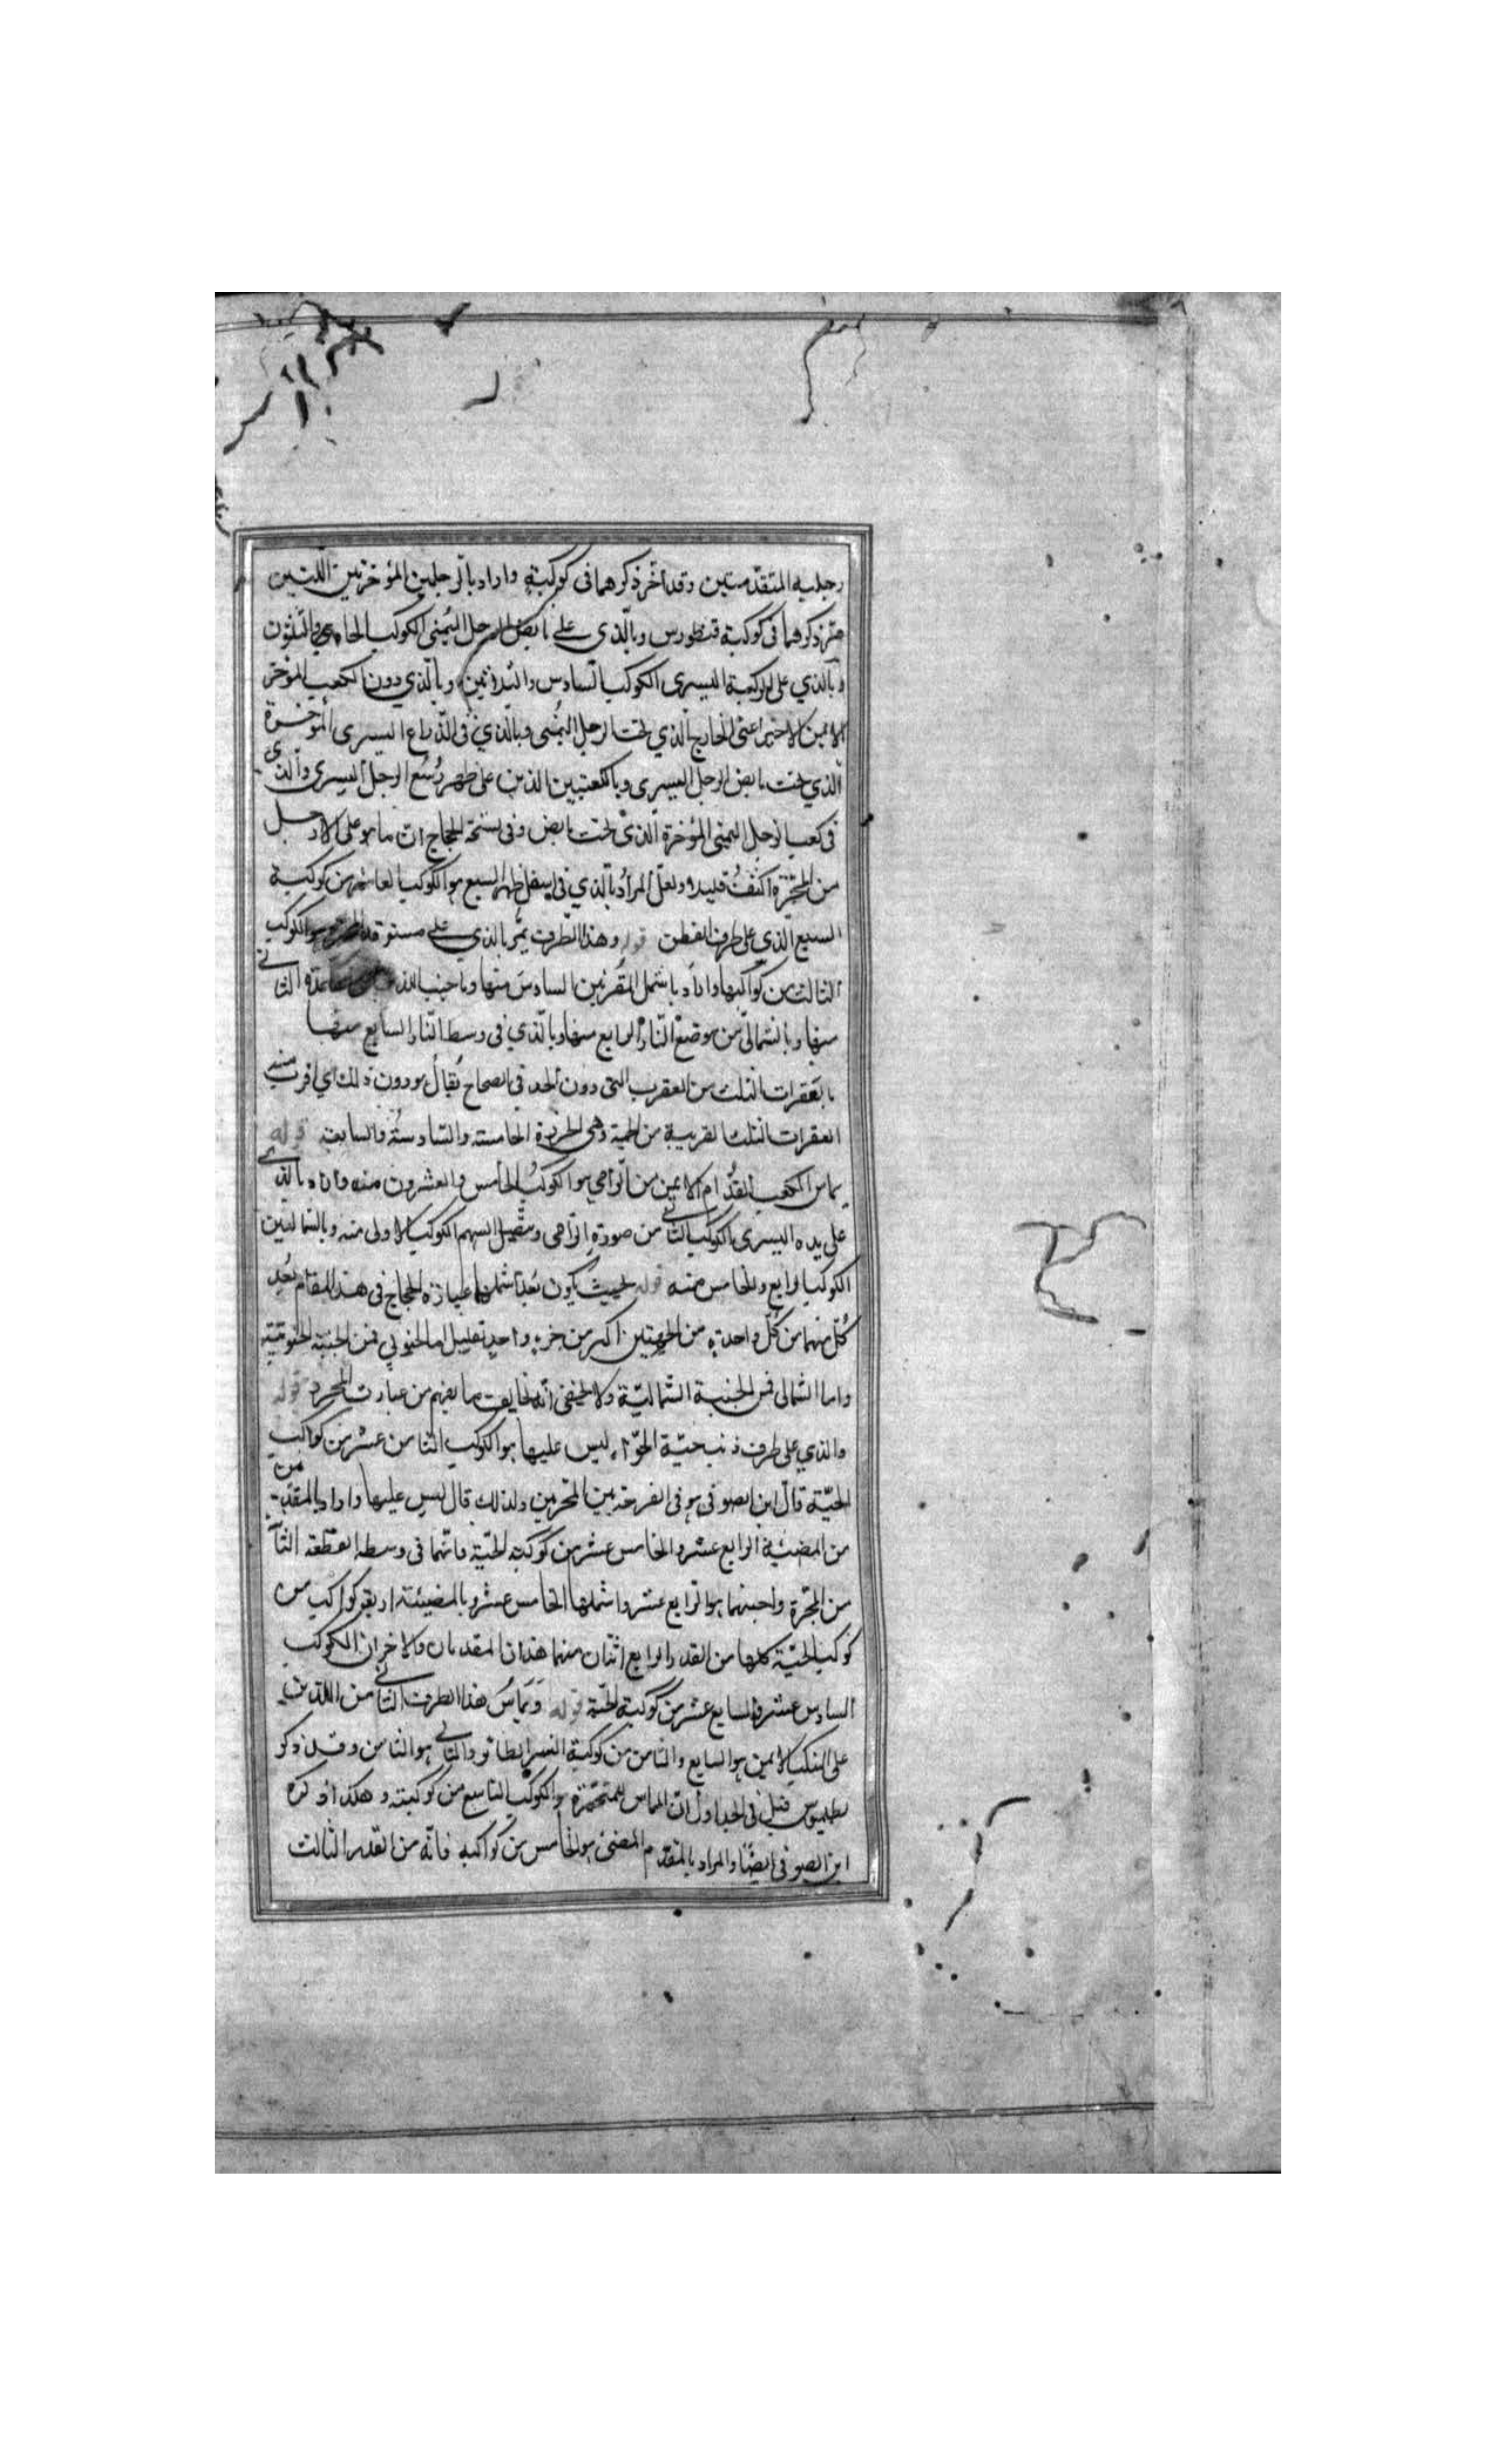 رجليه المتقدمتين وقد أخر ذكرهما في كوكبته واراد بالرجلين المؤخرتين اللتين
ذكرهما في كوكبة قنطورس وبالذي على مابض الرجل اليمنى الكوكب الحادي والثلثون
وبالذي على الركبة اليسرى الكوكب السادس وبالذي دون الكعب المؤخر
الايمن الاخير اعنى الخارج الذي تحت الرجل اليمنى وبالذي في الذراع اليسرى المؤخرة
الذي تحت مابض الرجل اليسرى وبالكعبين الذين على ظهر رسغ الرجل اليسرى والذي
في كعب الرجل اليمنى المؤخرة الذي تحت مابض وفي نسخة الحجاج ان ما هو على الارجل
من المجرة اكثف قليلا ولعل المراد بالذي في اسفل ظهر السبع هو الكوكب العاشر من كوكبة
السبع الذي على طرف القطن قوله وهذا الطرف يمر بالذي على مستوقد هو الكوكب
الثالث من كواكبها واراد باشمل المقربين السادس منها وباجنب الثاني
منها وبالشمالي من موضع النار الرابع منها وبالذي في وسط النار السابع منها
بالفقرات الثلث من العقرب التي دون الحد في الصحاح يقال هو دون ذلك اي اقرب منه
الفقرات الثلث القريبة من الحمة وهي الخرزة الخامسة والسادسة والسابعة قوله
يماس الكعب القدام الايمن من الرامي هو الكوكب الخامس والعشرون منه واراد بالذي
على يده اليسرى الكوكب الثاني من صورة الرامي وبنصل السهم الكوكب الاولى منه وبالشماليين
الكوكب الرابع والخامس منه قوله بحيث يكون بعد اشملهما عبارة الحجاج في هذا المقام بعد
كل منهما من كل واحدة من الجهتين اكبر من جزء واحد بقليل اما الجنوبي فمن الجنبة الجنوبية
واما الشمالي فمن الجنبة الشمالية ولا يخفى انه يخالف ما يفهم من عبارت المحرر قوله
والذي على طرف ذنب حية الحواء ليس عليها هو الكوكب الثامن عشر من كواكب
الحية قال ابن الصوفي هو في الفرجة بين المجرتين ولذلك قال ليس عليها واراد بالمتقدمين
من المضيئة الرابع عشر والخامس عشر من كوكبة الحية فانهما في وسط القطعة الثا
من المجرة واجنبهما هو الرابع عشر واشملها الخامس عشر وبالمضيئة اربعة كواكب من
كوكب الحية كلها من القدر الرابع اثنان منهما هذان المتقدمان والاخران الكوكب
السادس عشر والسابع عشر من كوكبة الحية قوله ويماس هذا الطرف الثاني من اللذين
على المنكب الايمن هو السابع والثامن من كوكبة النسر الطائر والتالي هو الثامن وقد ذكر
بطلميوس قبل في الجداول ان المماس للمجرة هو الكوكب التاسع من كوكبته وهكذا ذكره
ابن الصوفي ايضا والمراد بالمتقدم المضئ هو الخامس من كواكبه فانه من القدر الثالث